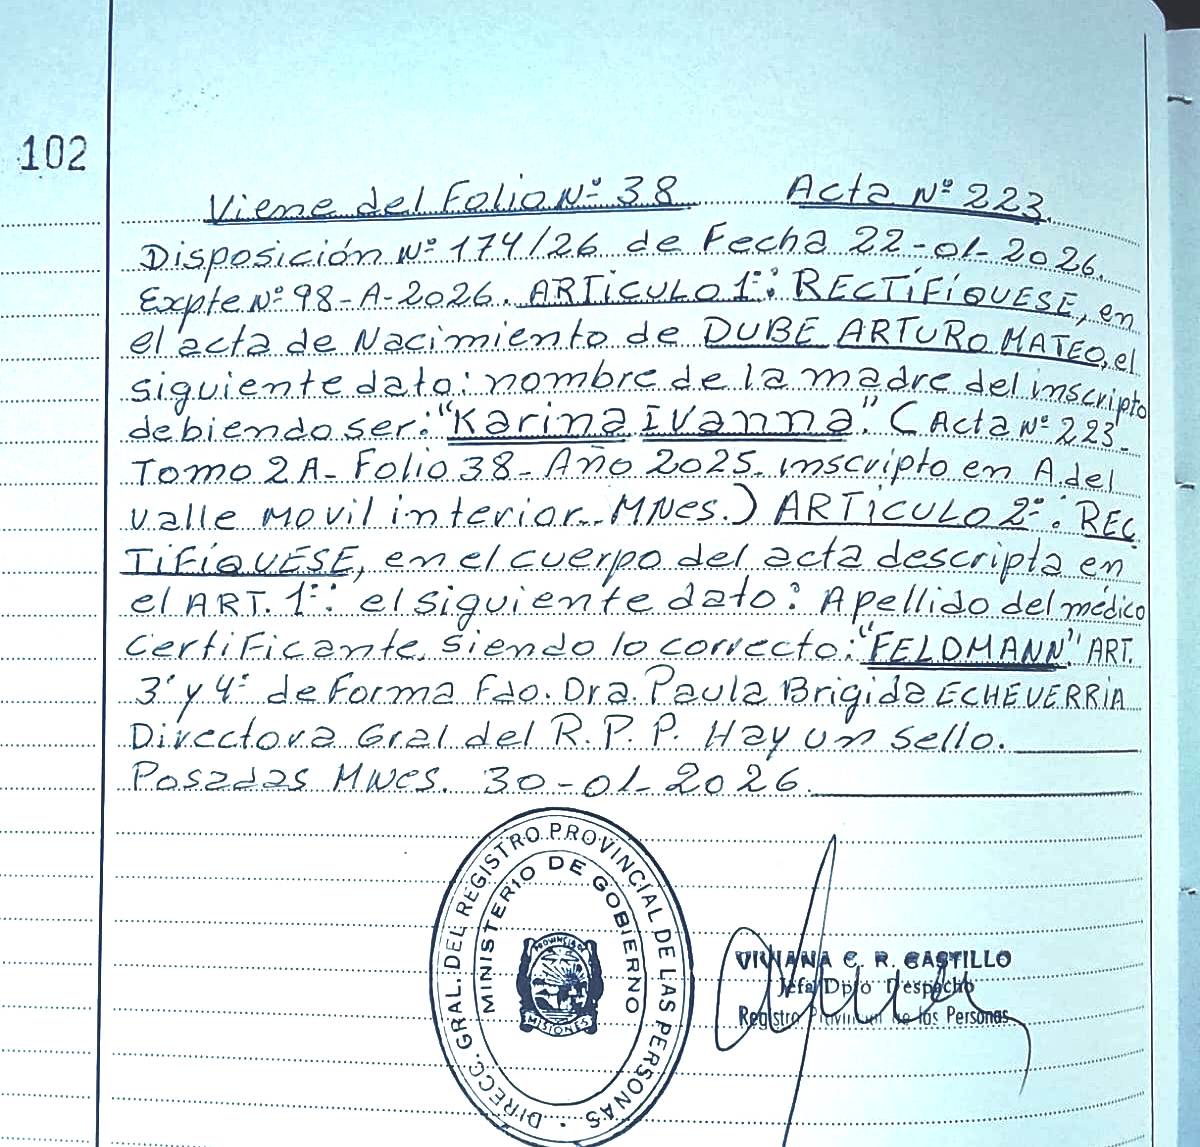 102
Viene del Folio Nº 38 Acta Nº 223.
Disposición Nº 174/26 de Fecha 22-01-2026.
Expte Nº 98-A-2026. ARTÍCULO 1º: RECTIFÍQUESE, en
el acta de Nacimiento de DUBE ARTURO MATEO, el
siguiente dato: nombre de la madre del inscripto
debiendo ser: "Karina Ivanna". (Acta Nº 223-
Tomo 2A- Folio 38- Año 2025. inscripto en A. del
Valle Movil interior.. MNes.) ARTÍCULO 2º: REC
TIFÍQUESE, en el cuerpo del acta descripta en
el ART. 1º: el siguiente dato: Apellido del médico
Certificante. siendo lo correcto: "FELDMANN". ART.
3º y 4º de Forma Fdo. Dra. Paula Brigida ECHEVERRIA
Directora Gral del R. P. P. Hay un sello.
Posadas MNES. 30-01-2026.
DIRECC. GRAL. DEL REGISTRO PROVINCIAL DE LAS PERSONAS
MINISTERIO DE GOBIERNO
PROVINCIA DE
MISIONES
VIVIANA C. R. CASTILLO
Jefa Dpto Despacho
Registro Provincial de las Personas